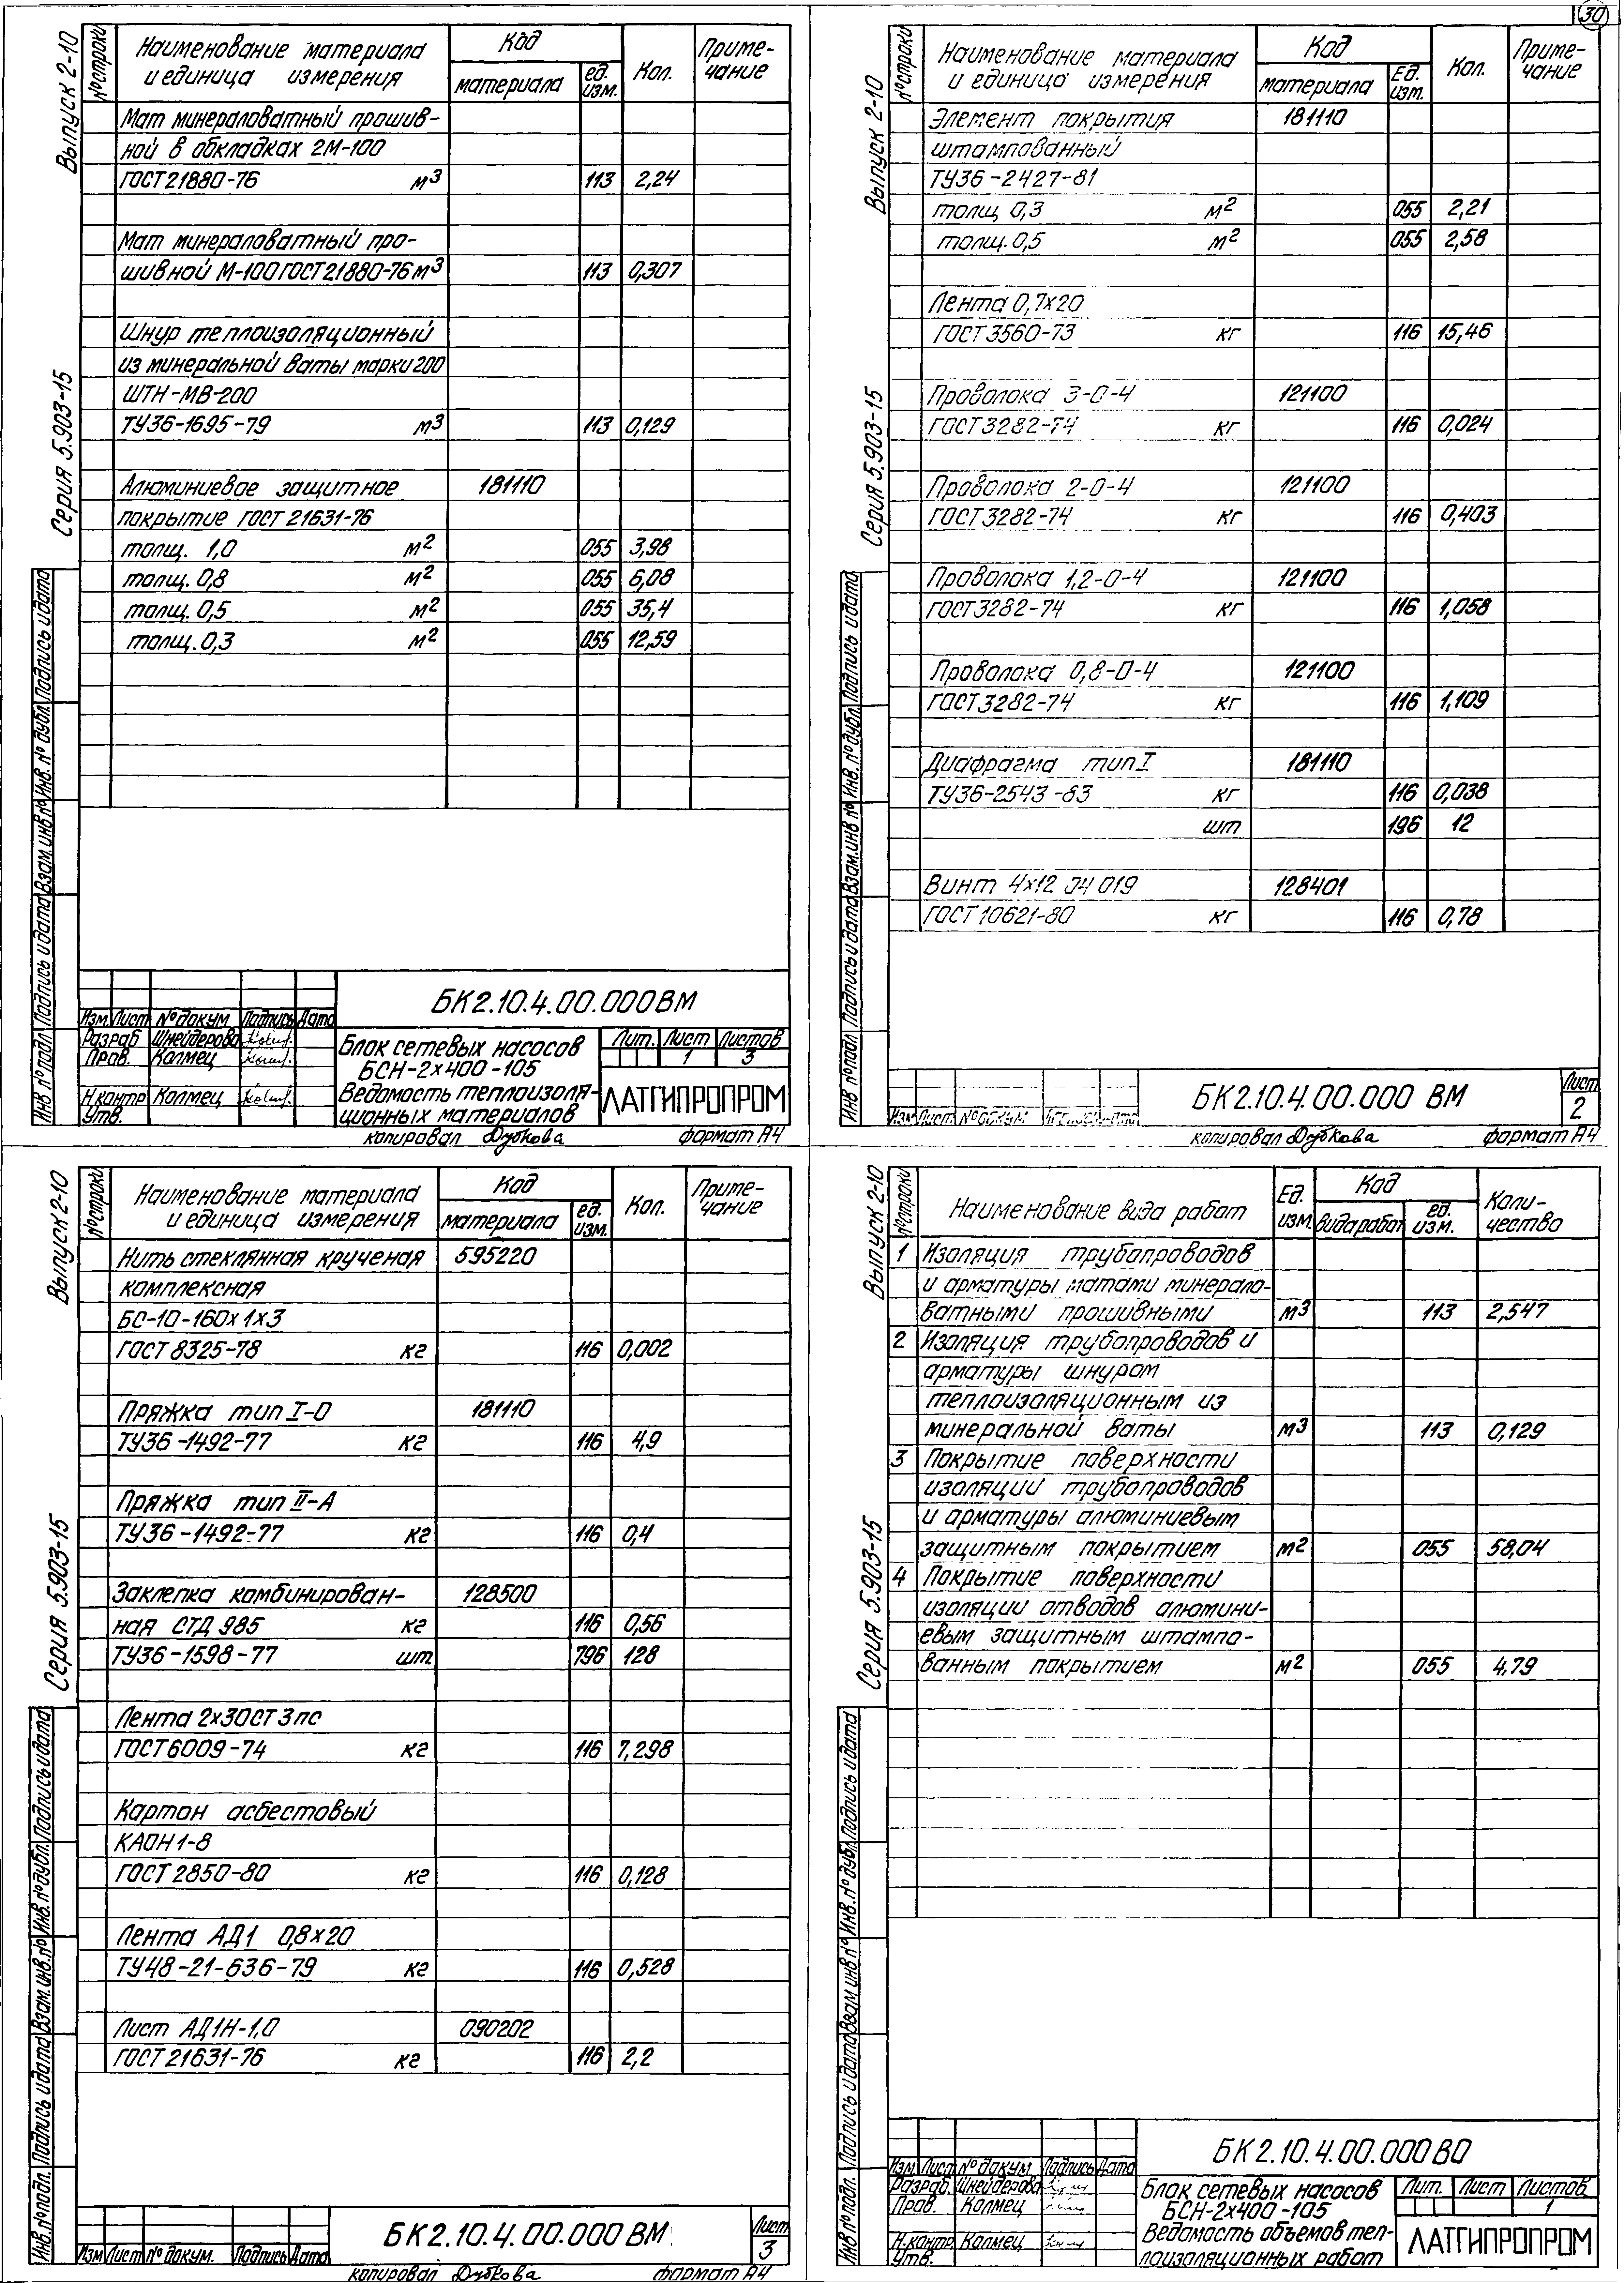 30
Выпуск 2-10
Серия 5.903-15
№ строки
Наименование материала и единица измерения
Код
материала
ед. изм.
Кол.
Примечание
Мат минераловатный прошив-
ной в обкладках 2М-100
ГОСТ 21880-76 м³ 113 2,24
Мат минераловатный про-
шивной М-100 ГОСТ 21880-76 м³ 113 0,307
Шнур теплоизоляционный
из минеральной ваты марки 200
ШТН-МВ-200
ТУ36-1695-79 м³ 113 0,129
Алюминиевое защитное 181110
покрытие ГОСТ 21631-76
толщ. 1,0 м² 055 3,98
толщ. 0,8 м² 055 6,08
толщ. 0,5 м² 055 35,4
толщ. 0,3 м² 055 12,59
Инв № подл Подпись и дата Взам. инв № Инв. № дубл. Подпись и дата
БК2.10.4.00.000ВМ
Изм. Лист № докум Подпись Дата
Разраб Шнейдерова
Пров. Колмец
Н.контр Колмец
Утв.
Блок сетевых насосов
БСН-2х400-105
Ведомость теплоизоля-
ционных материалов
Лит. Лист Листов
1 3
ЛАТГИПРОПРОМ
копировал Дубкова формат А4
Выпуск 2-10
Серия 5.903-15
№ строки
Наименование материала и единица измерения
Код
материала
Ед. изм.
Кол.
Примечание
Элемент покрытия 181110
штампованный
ТУ36-2427-81
толщ 0,3 м² 055 2,21
толщ. 0,5 м² 055 2,58
Лента 0,7х20
ГОСТ 3560-73 кг 116 15,46
Проволока 3-0-4 121100
ГОСТ 3282-74 кг 116 0,024
Проволока 2-0-4 121100
ГОСТ 3282-74 кг 116 0,403
Проволока 1,2-0-4 121100
ГОСТ 3282-74 кг 116 1,058
Проволока 0,8-0-4 121100
ГОСТ 3282-74 кг 116 1,109
Диафрагма тип I 181110
ТУ36-2543-83 кг 116 0,038
шт 196 12
Винт 4х12 04 019 128401
ГОСТ 10621-80 кг 116 0,78
Инв № подл Подпись и дата Взам. инв № Инв. № дубл. Подпись и дата
Изм Лист
БК2.10.4.00.000 ВМ
Лист
2
копировал Дубкова формат А4
Выпуск 2-10
Серия 5.903-15
№ строки
Наименование материала и единица измерения
Код
материала
ед. изм.
Кол.
Примечание
Нить стеклянная крученая 595220
комплексная
БС-10-160х1х3
ГОСТ 8325-78 кг 116 0,002
Пряжка тип I-0 181110
ТУ36-1492-77 кг 116 4,9
Пряжка тип II-А
ТУ36-1492-77 кг 116 0,4
Заклепка комбинирован- 128500
ная СТД 985 кг 116 0,56
ТУ36-1598-77 шт 796 128
Лента 2х30 СТ 3 пс
ГОСТ 6009-74 кг 116 7,298
Картон асбестовый
КАОН 1-8
ГОСТ 2850-80 кг 116 0,128
Лента АД1 0,8х20
ТУ48-21-636-79 кг 116 0,528
Лист АД1Н-1,0 090202
ГОСТ 21631-76 кг 116 2,2
Инв № подл. Подпись и дата Взам. инв. № Инв. № дубл. Подпись и дата
Изм Лист № докум. Подпись Дата
БК2.10.4.00.000 ВМ
Лист
3
копировал Дубкова формат А4
Выпуск 2-10
Серия 5.903-15
№ строки
Наименование вида работ
Ед. изм.
Код
вида работ
ед. изм.
Коли-
чество
1 Изоляция трубопроводов
и арматуры матами минерало-
ватными прошивными м³ 113 2,547
2 Изоляция трубопроводов и
арматуры шнуром
теплоизоляционным из
минеральной ваты м³ 113 0,129
3 Покрытие поверхности
изоляции трубопроводов
и арматуры алюминиевым
защитным покрытием м² 055 58,04
4 Покрытие поверхности
изоляции отводов алюмини-
евым защитным штампо-
ванным покрытием м² 055 4,79
Инв № подл. Подпись и дата Взам инв № Инв. № дубл. Подпись и дата
БК2.10.4.00.000 ВО
Изм. Лист № докум Подпись Дата
Разраб. Шнейдерова
Пров. Колмец
Н.контр Колмец
Утв.
Блок сетевых насосов
БСН-2х400-105
Ведомость объемов теп-
лоизоляционных работ
Лит. Лист Листов
1
ЛАТГИПРОПРОМ